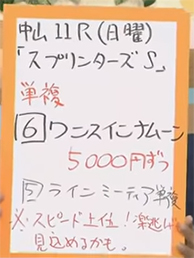 中山11R(日曜)
「スプリンターズS」
単複
6 ワンスインナムーン
5000円ずつ
5 ラインミーティア単複
※スピード上位!楽逃げ
見込めるかも。